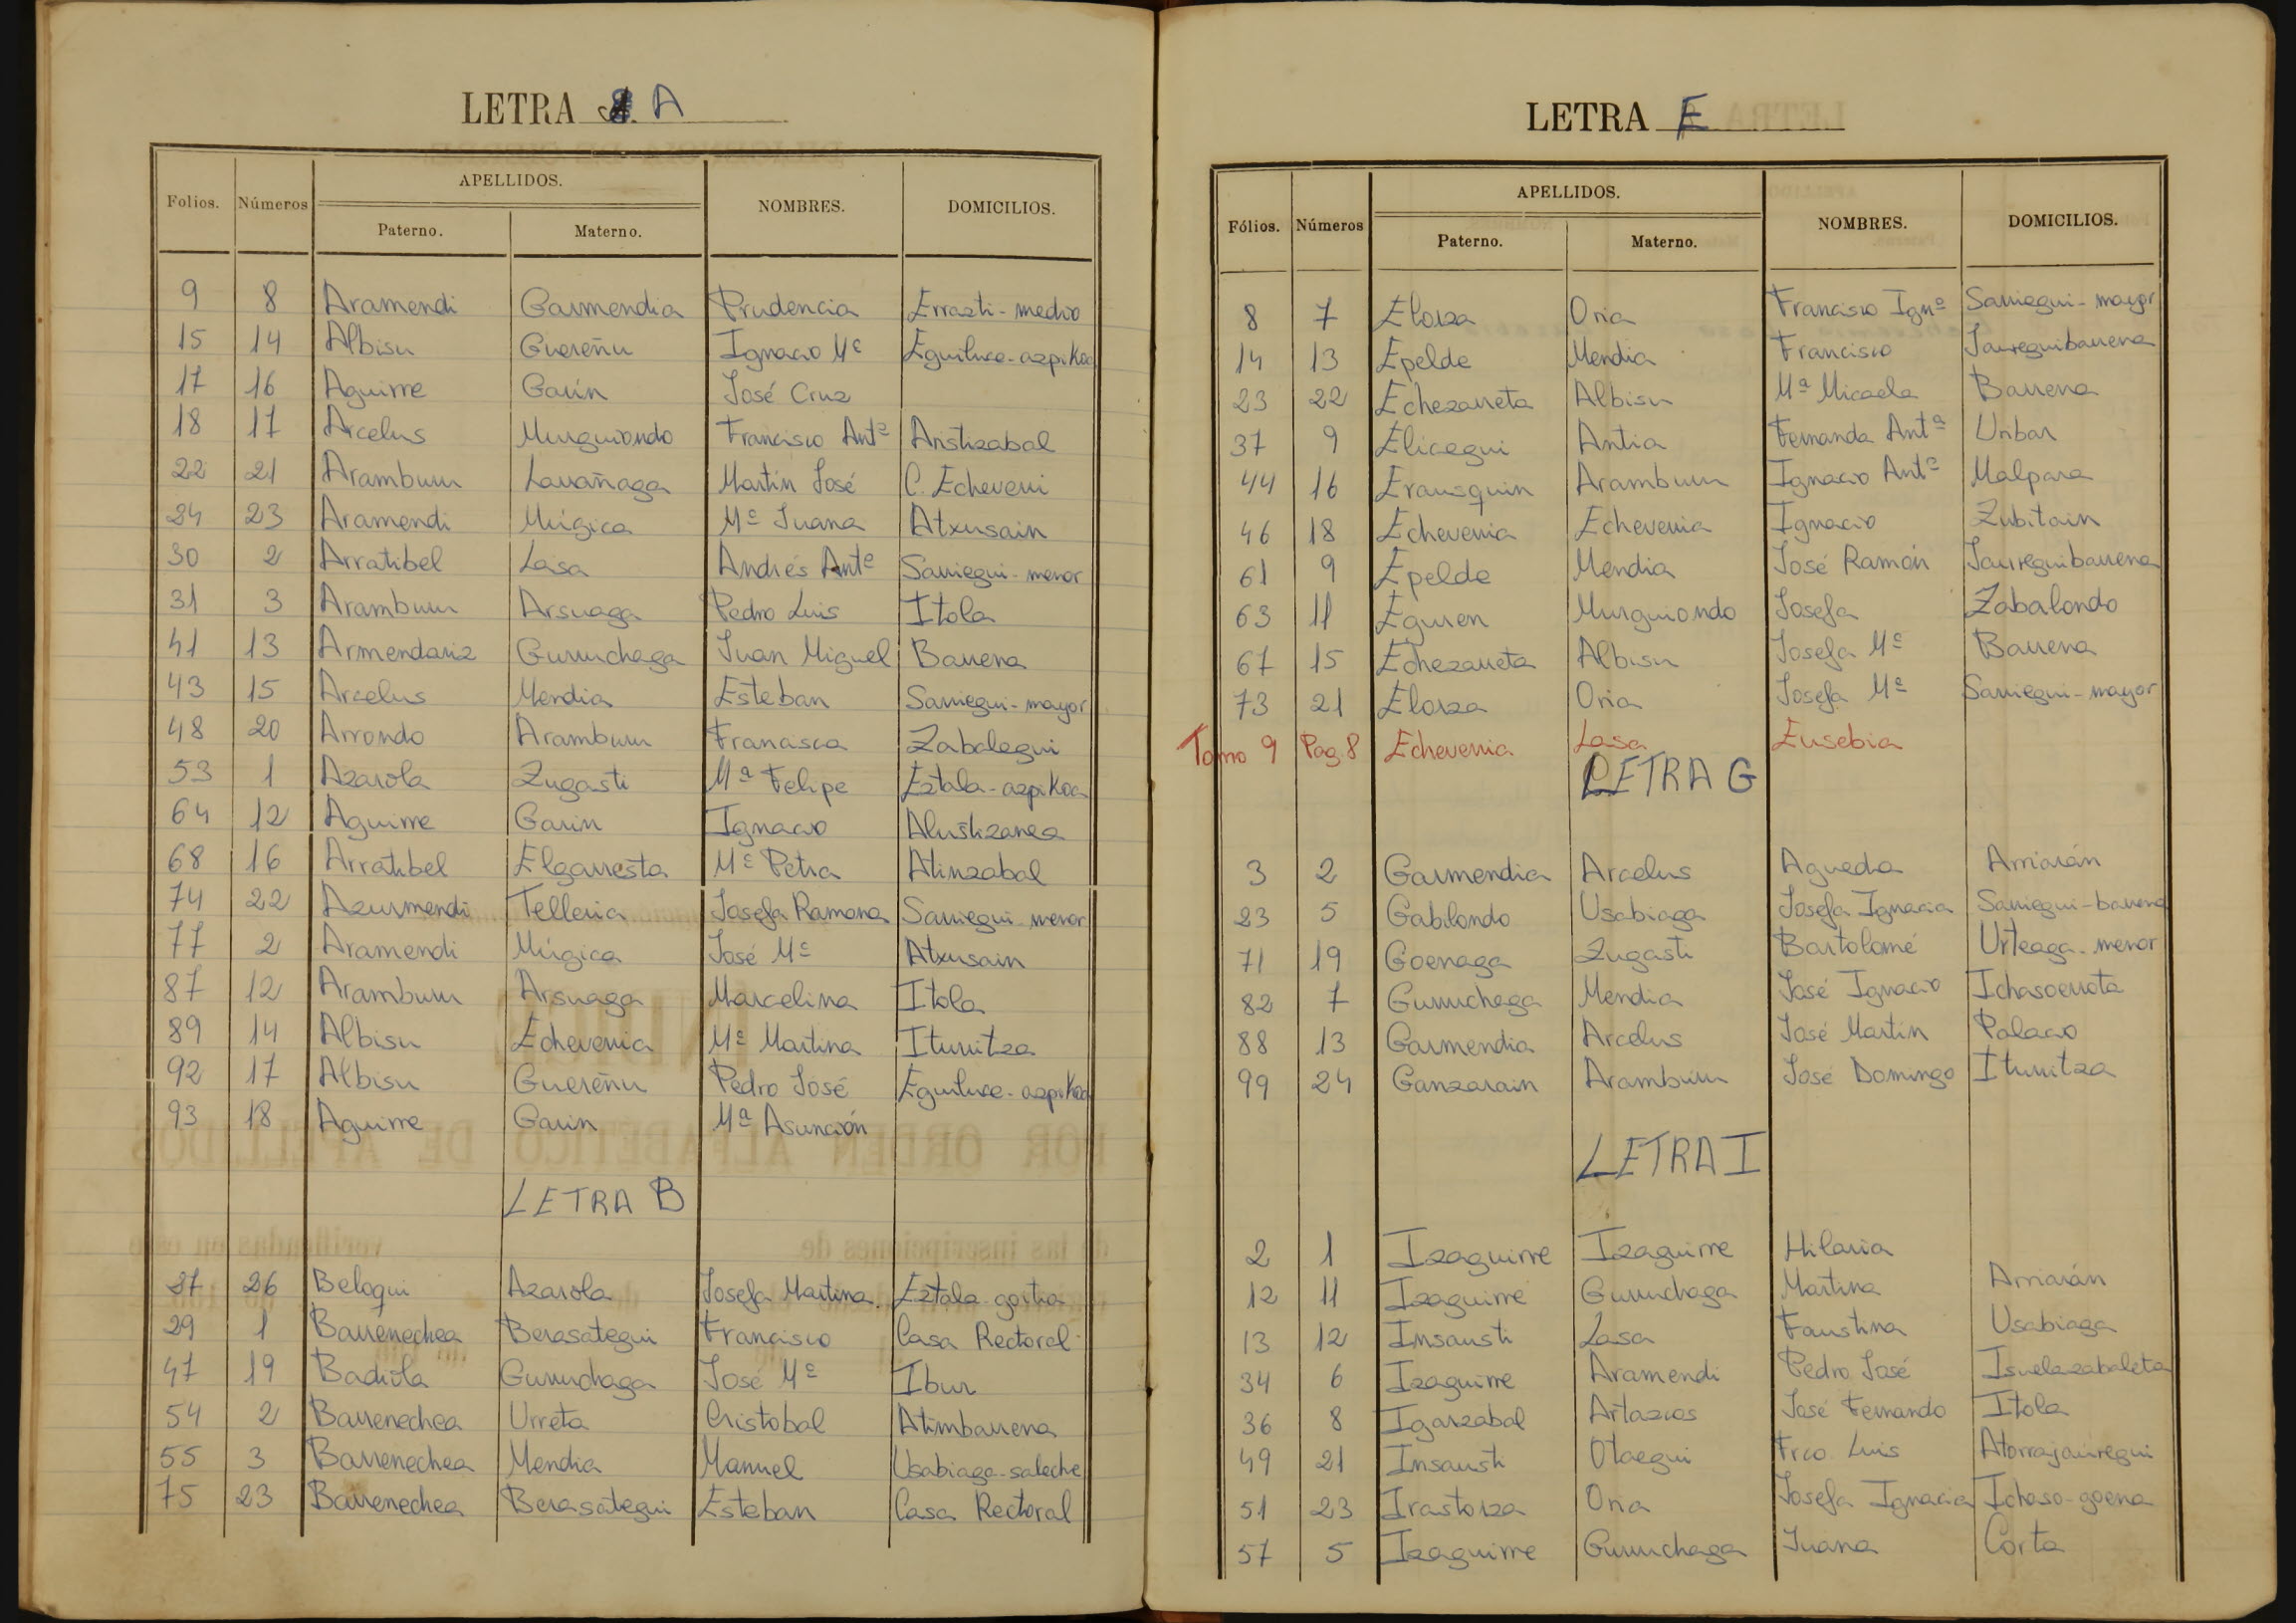 LETRA A
Folios. Números APELLIDOS. NOMBRES. DOMICILIOS.
Paterno. Materno.
9 8 Aramendi Garmendia Prudencia Errazti-medio
15 14 Albisu Guereñu Ignacio Mª Eguiluce-azpikoa
17 16 Aguirre Garín José Cruz
18 17 Arcelus Murguiondo Francisco Antº Aristizabal
22 21 Aramburu Larrañaga Martín José C. Echeverri
24 23 Aramendi Múgica Mª Juana Atxusain
30 2 Arratibel Lasa Andrés Antº Sarriegui-menor
31 3 Aramburu Arsuaga Pedro Luis Itola
41 13 Armendariz Guruchaga Juan Miguel Barrena
43 15 Arcelus Mendia Esteban Sarriegui-mayor
48 20 Arrondo Aramburu Francisca Zabalegui
53 1 Azarola Zugasti Mª Felipe Eztala-azpikoa
64 12 Aguirre Garin Ignacio Alustizarrea
68 16 Arratibel Elgarresta Mª Petra Atinzabal
74 22 Azurmendi Telleria Josefa Ramona Sarriegui menor
77 2 Aramendi Múgica José Mª Atxusain
87 12 Aramburu Arsuaga Marcelina Itola
89 14 Albisu Echeverria Mª Martina Iturritza
92 17 Albisu Guereñu Pedro José Eguiluce-azpikoa
93 18 Aguirre Garin Mª Asunción
LETRA B
27 26 Beloqui Azarola Josefa Martina Eztala goitia
29 1 Barrenechea Berasategui Francisco Casa Rectoral
47 19 Badiola Guruchaga José Mª Ibur
54 2 Barrenechea Urreta Cristobal Atimbarrena
55 3 Barrenechea Mendia Manuel Usabiaga-saleche
75 23 Barrenechea Berasategui Esteban Casa Rectoral
LETRA E
Fólios. Números APELLIDOS. NOMBRES. DOMICILIOS.
Paterno. Materno.
8 7 Elorza Oria Francisco Ignº Sarriegui-mayor
14 13 Epelde Mendia Francisco Jaureguibarrena
23 22 Echezarreta Albisu Mª Micaela Barrena
37 9 Elicegui Antia Fernanda Antª Uribar
44 16 Erausquin Aramburu Ignacio Antº Malpara
46 18 Echeverria Echeverria Ignacio Zubitain
61 9 Epelde Mendia José Ramón Jaureguibarrena
63 11 Eguren Murguiondo Josefa Zabalondo
67 15 Echezarreta Albisu Josefa Mª Barrena
73 21 Elorza Oria Josefa Mª Sarriegui-mayor
Tomo 9 Pag. 8 Echeverria Lasa Eusebia
LETRA G
3 2 Garmendia Arcelus Agueda Arriarán
23 5 Gabilondo Usabiaga Josefa Ignacia Sarriegui-barrena
71 19 Goenaga Zugasti Bartolomé Urteaga-menor
82 7 Guruchaga Mendia José Ignacio Ichasoerrota
88 13 Garmendia Arcelus José Martín Palacio
99 24 Ganzarain Aramburu José Domingo Iturritza
LETRA I
2 1 Izaguirre Izaguirre Hilaria
12 11 Izaguirre Guruchaga Martina Arriarán
13 12 Insausti Lasa Faustina Usabiaga
34 6 Izaguirre Aramendi Pedro José Isuelazabaleta
36 8 Igarzabal Artazcos José Fernando Itola
49 21 Insausti Otaegui Frco Luis Atorrajauregui
51 23 Irastorza Oria Josefa Ignacia Ichaso-goena
57 5 Izaguirre Guruchaga Juana Corta